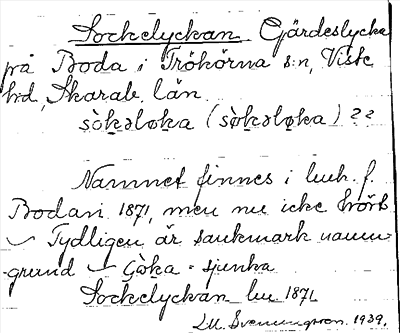 Sockelyckan Gärdeslycka
på Boda i Trökörna s:n, Viste
hd, Skarab. län.
sòkəlơka (sòkəlơka) ??
Namnet finnes i luh. f.
Bodan 1871, men nu icke hört
Tydligen är sankmark namn-
grund
sjunka
Sockelyckan lu. 1871
1939.